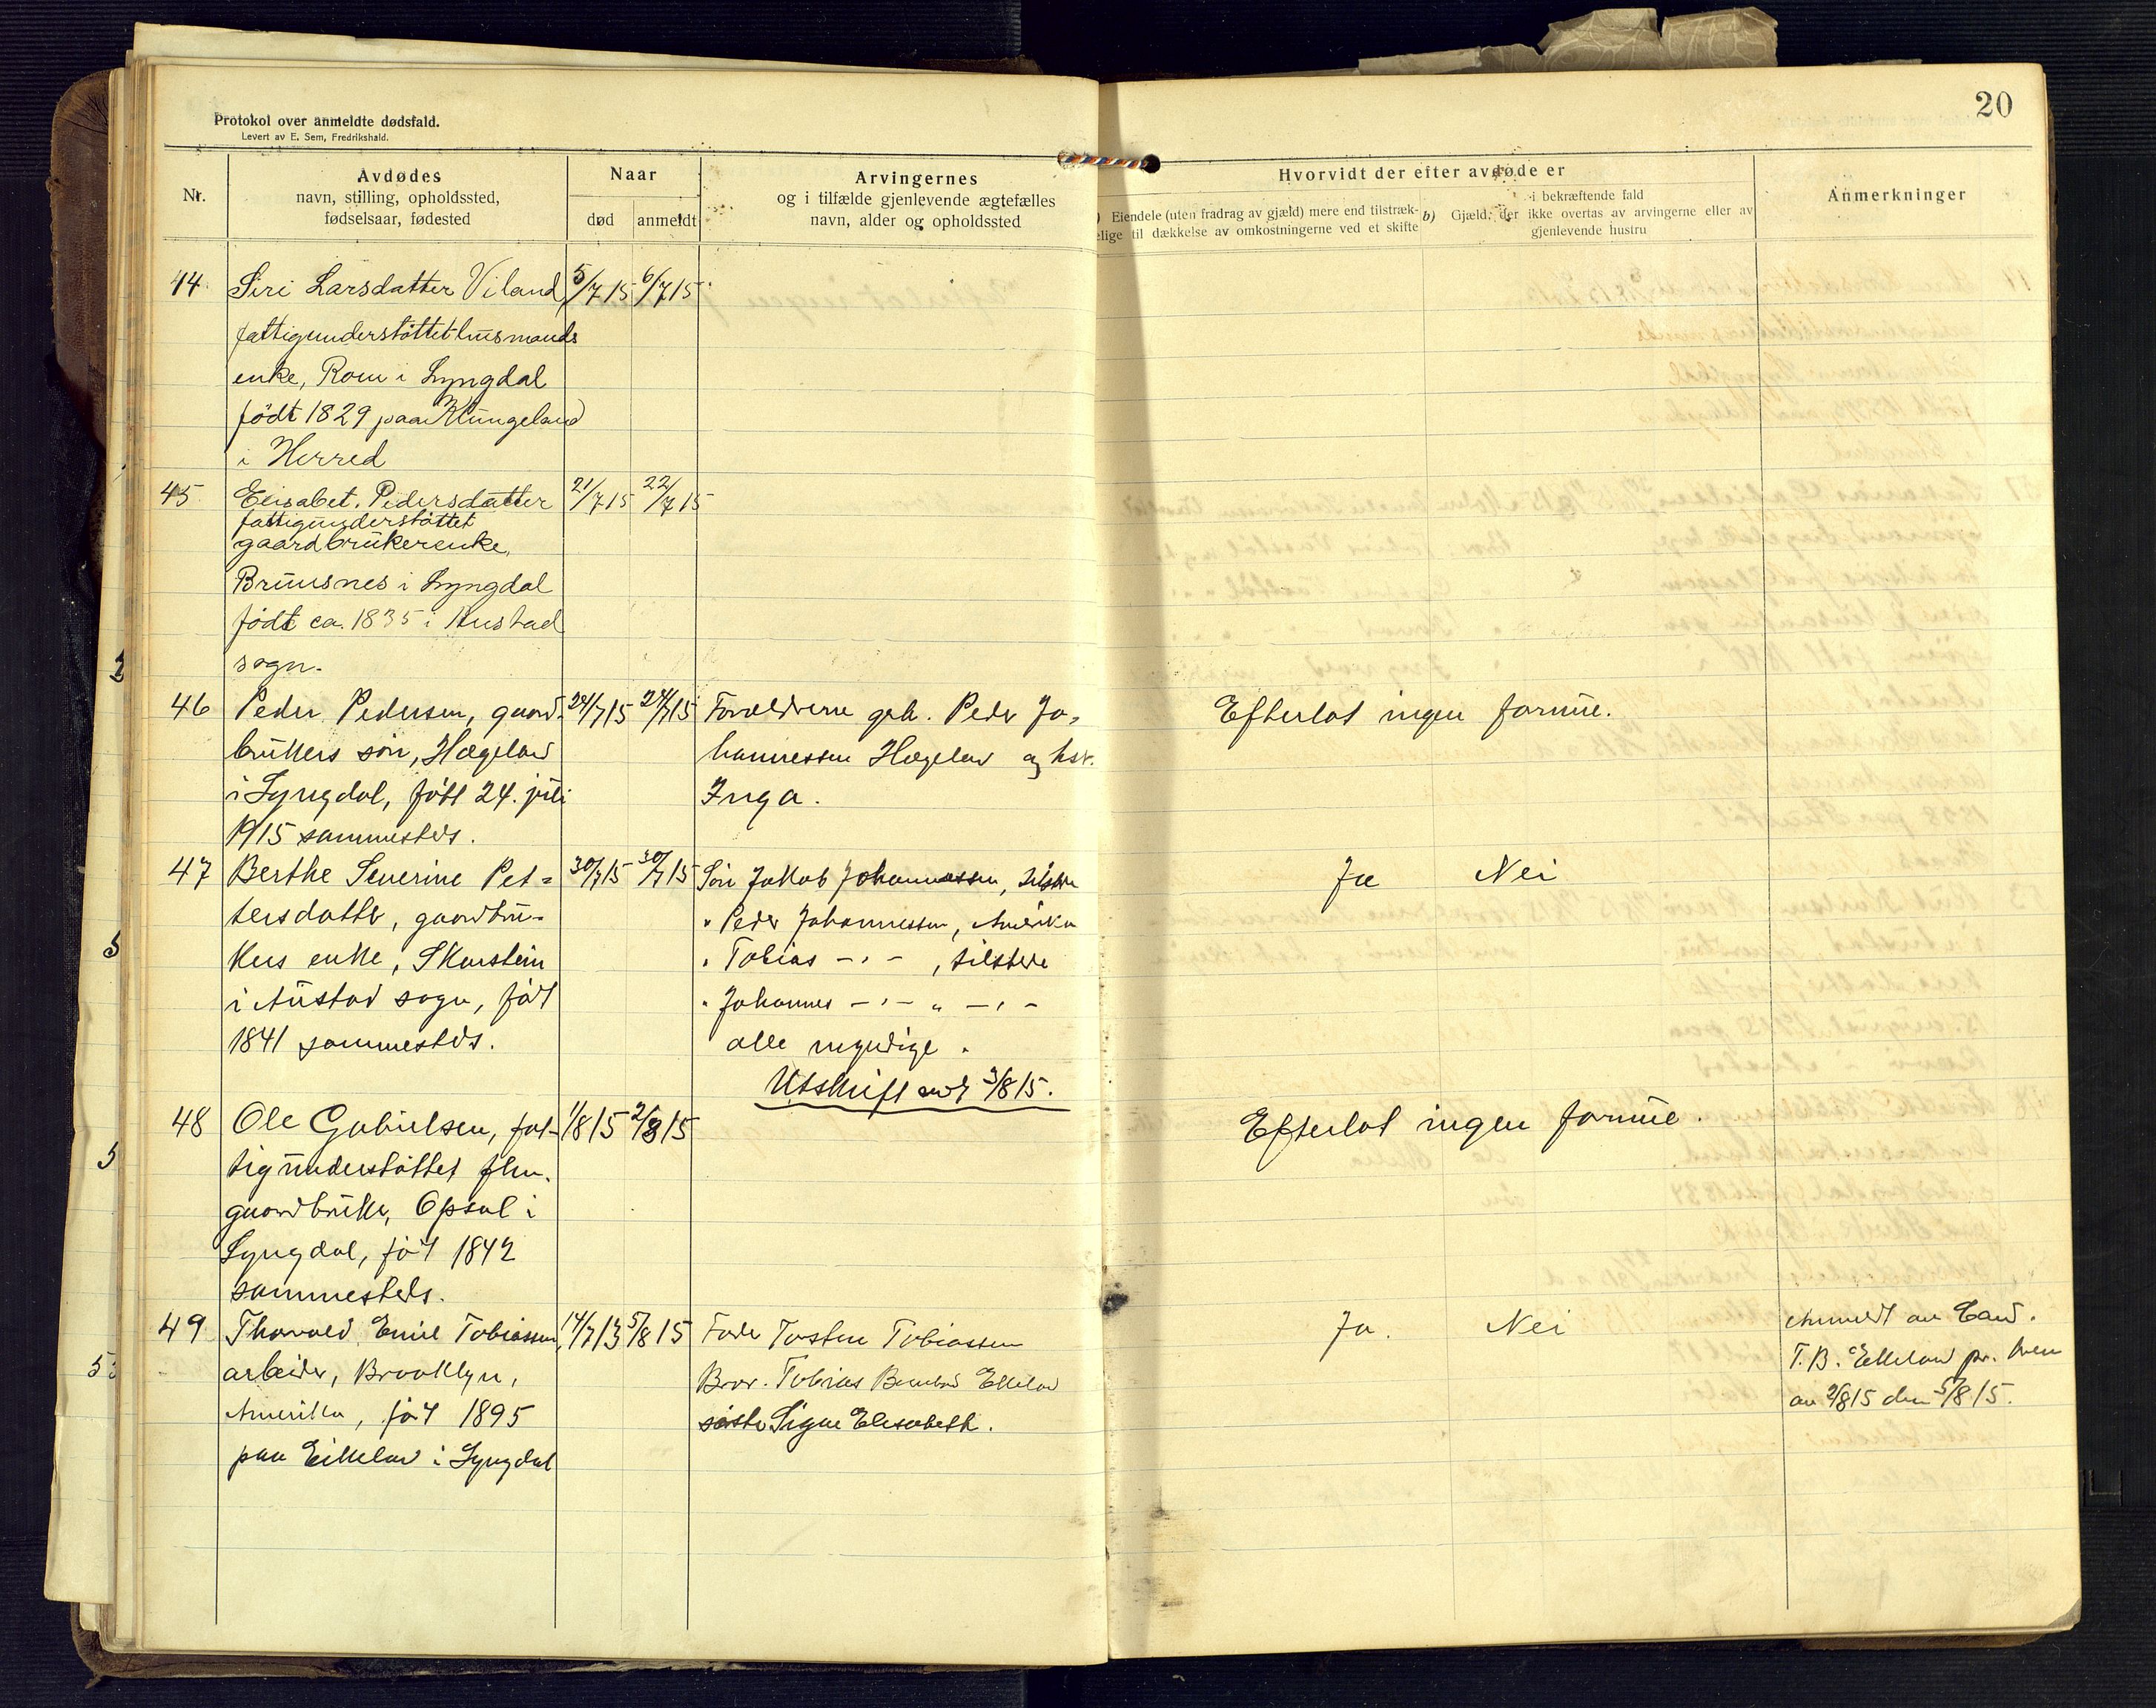 20
Protokol over anmeldte dødsfald.
Levert av E. Sem, Fredrikshald.
Nr.
Avdødes
navn, stilling, opholdssted,
fødselsaar, fødested
Naar
død
anmeldt
Arvingernes
og i tilfælde gjenlevende ægtefælles
navn, alder og opholdssted
Hvorvidt der efter avdøde er
Eiendele (uten fradrag av gjæld) mere end tilstræk-
elige til dækkelse av omkostningerne ved et skifte
b) Gjæld, der
i bekræftende fald
ikke overtas av arvingerne eller av
gjenlevende hustru
Anmerkninger
44. Siri Larsdatter Viland, 5/7 15 6/7 15
fattigunderstøttet husmands
enke, Rom i Lyngdal
født 1829 paa Klungeland
i Herred
45. Elisabet Pedersdatter 21/7 15 22/7 15
fattigunderstøttet
gaardbrukerenke,
Bruusnes i Lyngdal
født ca. 1835 i Austad
sogn.
46 Peder Pedersen, gaard- 24/7 15 24/7 15 Forældrene grb. Peder Jo- Efterlot ingen formue.
brukers søn, Hægeland hannessen Hægeland og hst.
i Lyngdal, født 24. juli Inga.
1915 sammesteds.
47 Berthe Severine Pet- 30/7 15 30/7 15 Søn Jakob Johannessen, tilstede Ja Nei
tersdatter, gaardbru- " Peder Johannessen, Amerika
kers enke, Skarstein " Tobias -"- , tilstede
i Austad sogn, født " Johannes -"- " -"-
1841 sammesteds. alle myndige.
Utskrift sendt 3/8 15.
48 Ole Gabrielsen, fat- 1/8 15 2/8 15 Efterlot ingen formue.
tigunderstøttet fhv.
gaardbruker, Opsal i
Lyngdal, født 1842
sammesteds.
49 Thorvald Emil Tobiassen, 14/7 13 5/8 15 Fader Torsten Tobiassen Ja. Nei Anmeldt av Land.
arbeider, Brooklyn, Bror. Tobias Bernhard Eikeland T. B. Eikeland pr. brev
Amerika, født 1895 søster Signe Elisabeth. av 2/8 15 den 5/8 15.
paa Eikeland i Lyngdal